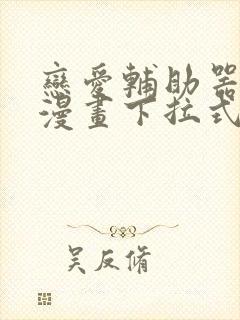 戀愛輔助器
漫畫下拉式
吴反脩